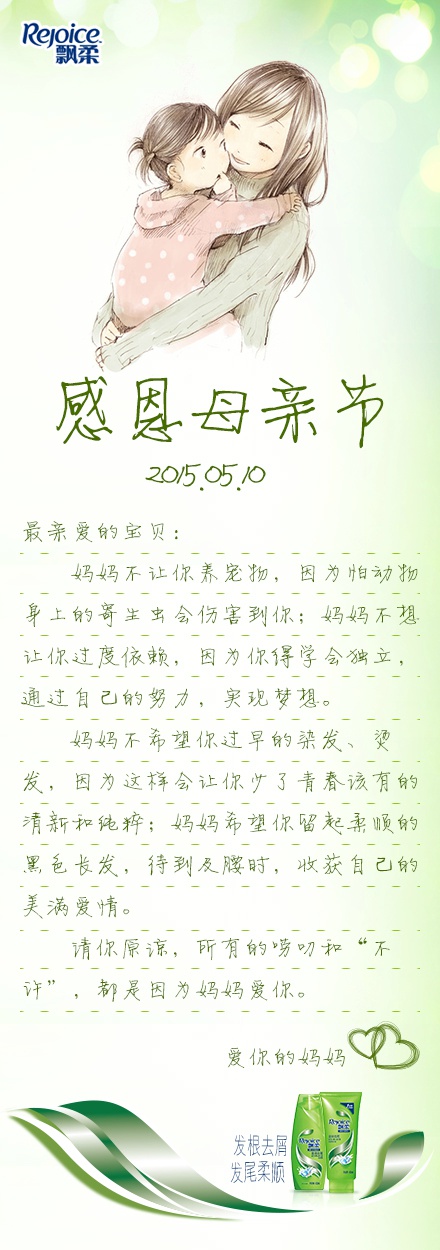 Rejoice
飘柔
感恩母亲节
2015.05.10
最亲爱的宝贝：
妈妈不让你养宠物，因为怕动物
身上的寄生虫会伤害到你；妈妈不想
让你过度依赖，因为你得学会独立，
通过自己的努力，实现梦想。
妈妈不希望你过早的染发、烫
发，因为这样会让你少了青春该有的
清新和纯粹；妈妈希望你留起柔顺的
黑色长发，待到及腰时，收获自己的
美满爱情。
请你原谅，所有的唠叨和“不
许”，都是因为妈妈爱你。
爱你的妈妈
发根去屑
发尾柔顺
Rejoice
飘柔
Rejoice
飘柔